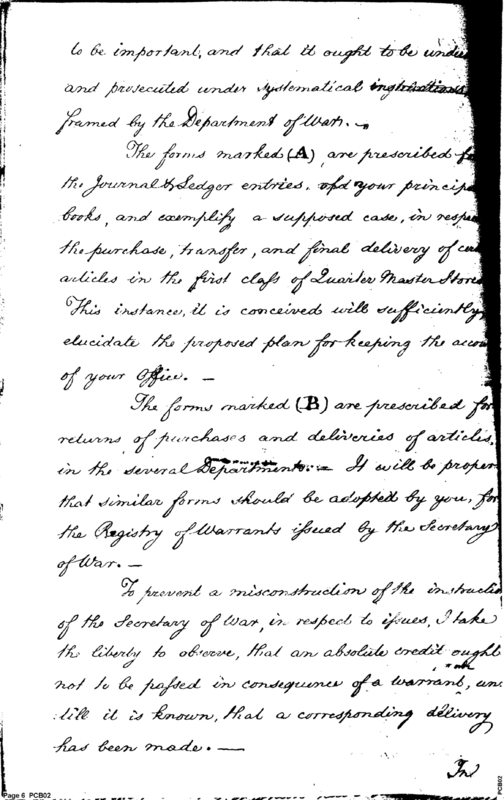 to be important, and that it ought to be unde
and prosecuted under systematical instructions,
framed by the Department of War. —
The forms marked (A) are prescribed fo
the Journal & Ledger entries, of your princip
books, and exemplify a supposed case, in respe
the purchase, transfer, and final delivery of cer
articles in the first class of Quarter Master Stores
This instance, it is conceived will sufficiently
elucidate the proposed plan for keeping the accou
of your Office. —
The forms marked (B) are prescribed for
returns of purchases and deliveries of articles,
in the several Departments: — It will be proper
that similar forms should be adopted by you, for
the Registry of Warrants issued by the Secretary
of War. —
To prevent a misconstruction of the instructio
of the Secretary of War, in respect to issues, I take
the liberty to observe, that an absolute credit ought
not to be passed in consequence of a warrant, un
till it is known, that a corresponding delivery
has been made. —
In
Page 6 PCB02
PCB02